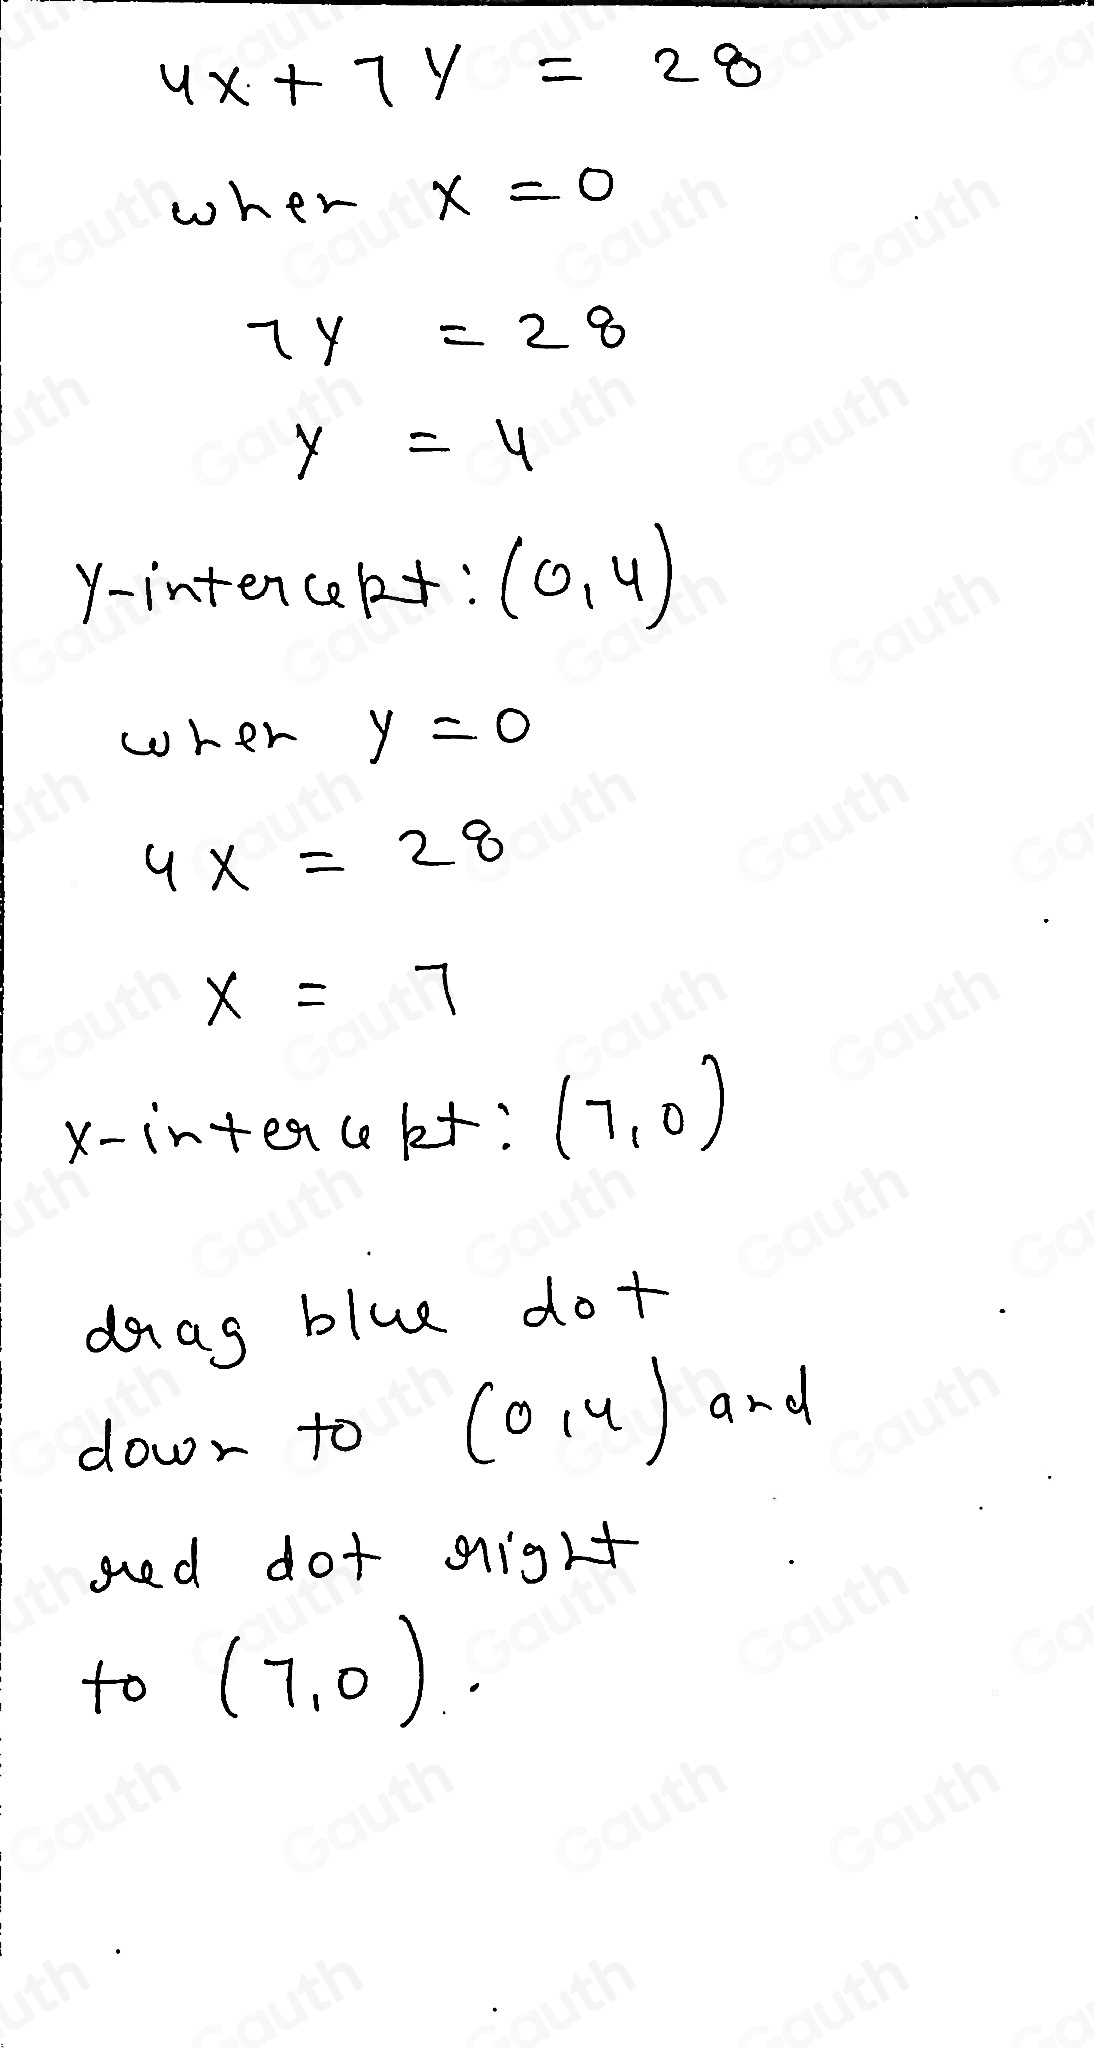 4x + 7y = 28
when x = 0
7y = 28
y = 4
y-intercept: (0,4)
when y = 0
4x = 28
x = 7
x-intercept: (7,0)
drag blue dot
down to (0,4) and
red dot right
to (7,0).